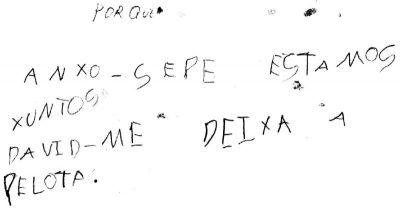 PORQUE
ANXO-SEPE ESTAMOS
XUNTOS
DAVID-ME DEIXA A
PELOTA.